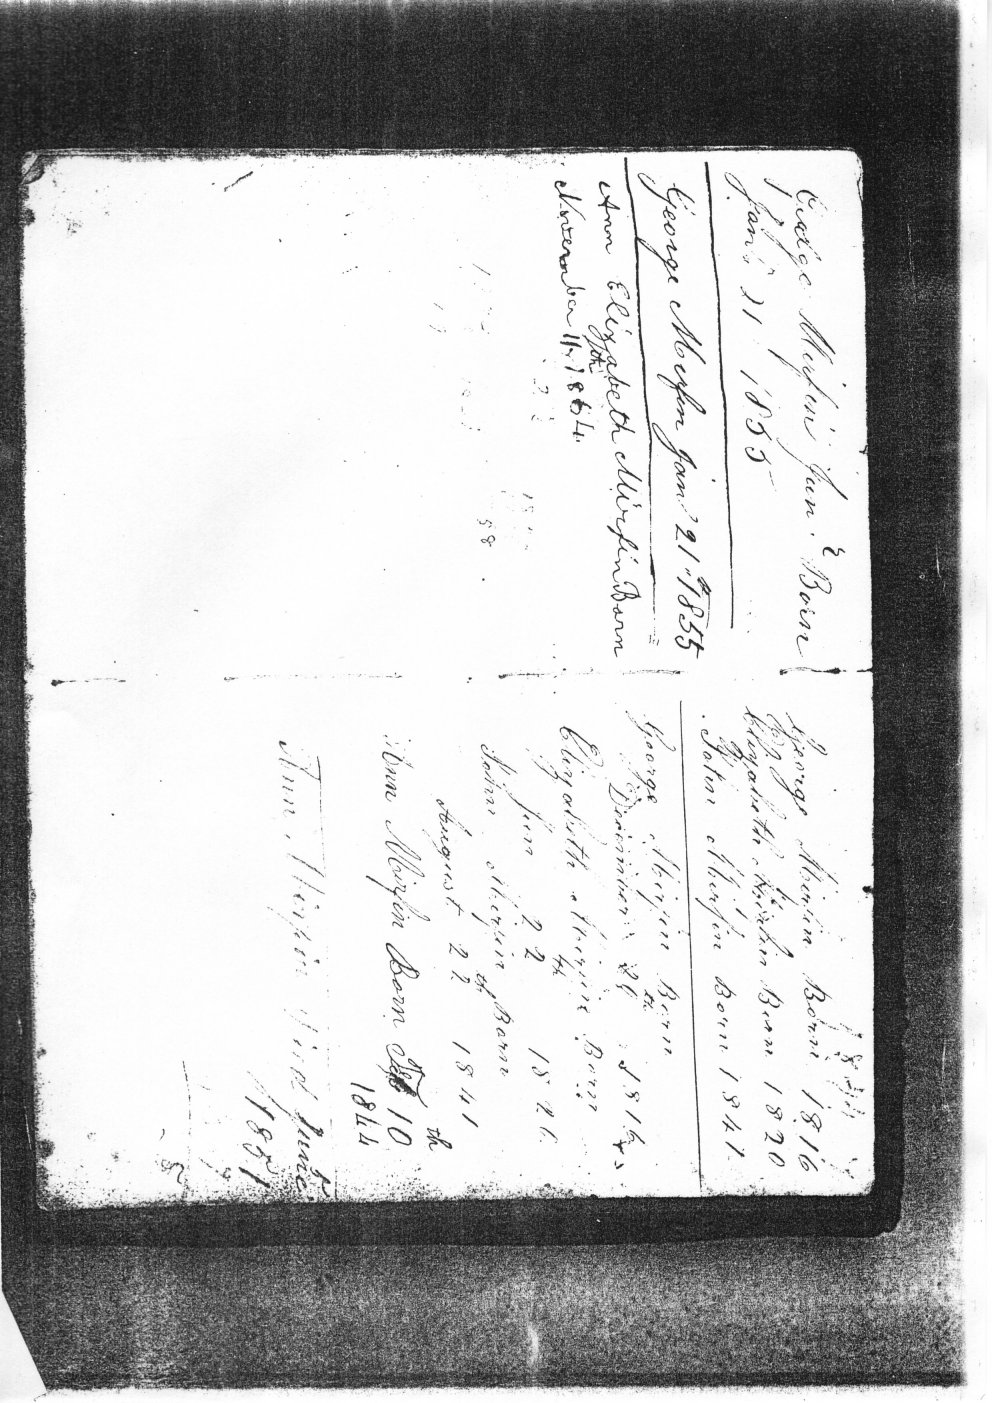 George Mirfin Jun.r Born
Jan.y 21 1855
George Mirfin Jan.y 21st 1855
Ann Elizabeth Mirfin Born
November 11th 1864.
58
George Mirfin Born 1816
Elizabeth Mirfin Born 1820
John Mirfin Born 1841
George Mirfin Born
December 29th 1816
Elizabeth Mirfin Born
Jun 22th 1820
John Mirfin Born
August 22th 1841
Ann Mirfin Born Feb 10th
1844
Ann Mirfin Died June
1851